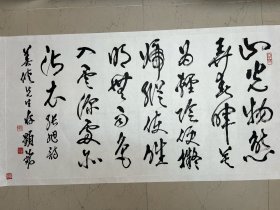 山光物態
弄春晖莫
為輕陰便擬
歸縱使晴
明無雨色
入雲深處亦
沾衣 張旭詩
先生